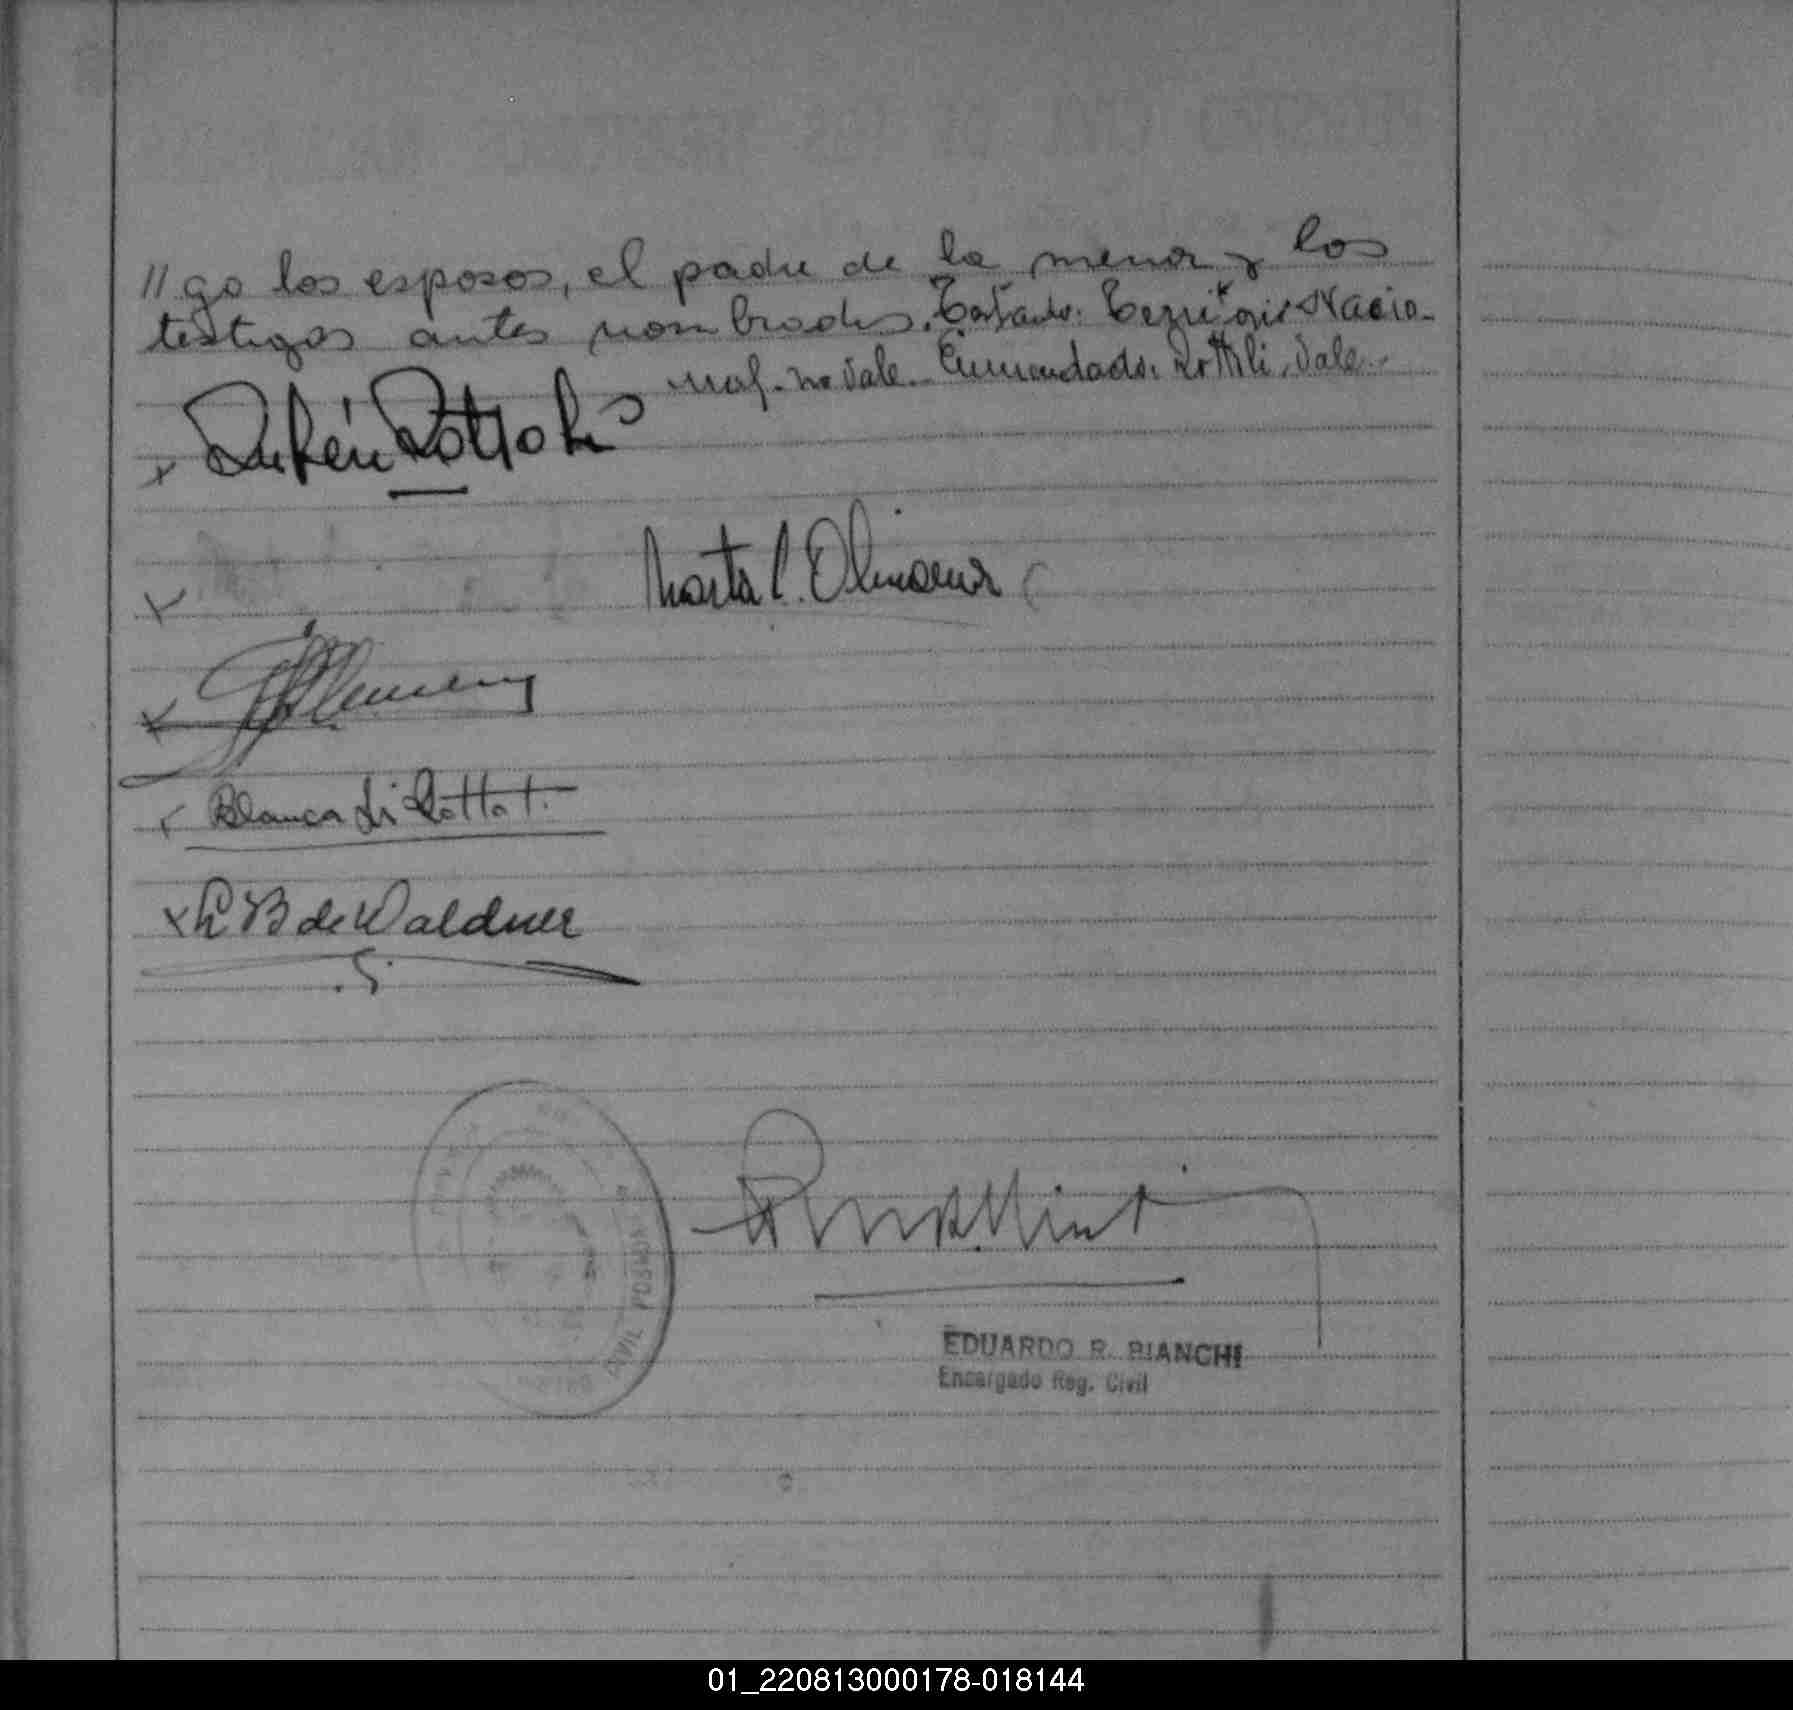 //go los esposos, el padre de la menor y los
testigos antes nombrados. Testado: Territorio Nacio-
nal. no vale. Enmendado: Rottoli, Vale.
Rubén Rottoli
Marta C. Olmaena
Blanca Li Rotto t.
L B de Waldner
EDUARDO R. BIANCHI
Encargado Reg. Civil
01_220813000178-018144